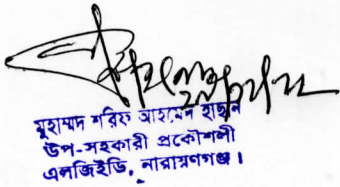 মুহাম্মদ শরিফ আহমেদ হাছান
উপ-সহকারী প্রকৌশলী
এলজিইডি, নারায়ণগঞ্জ।